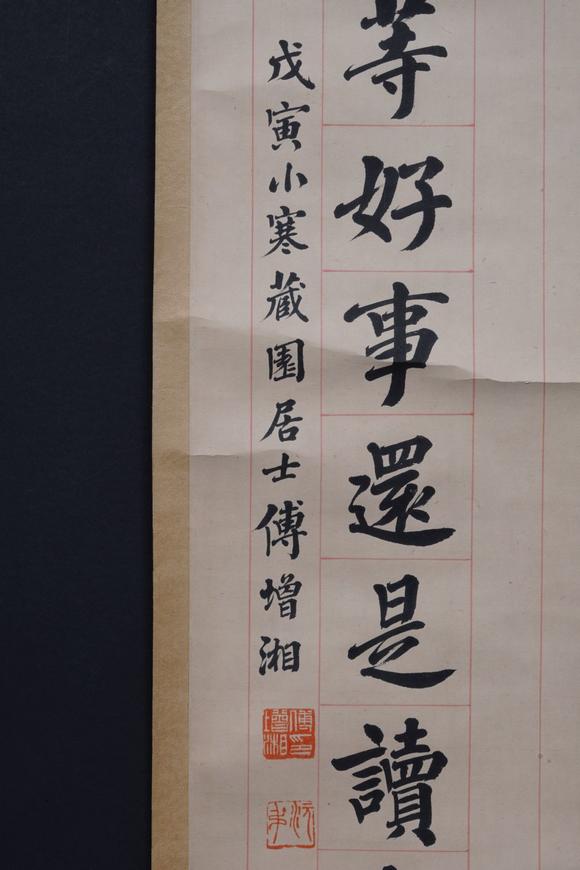 等好事還是讀
戊寅小寒藏園居士傅增湘
傅增湘印
沅尗